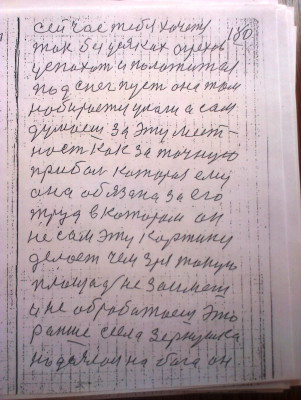 сейчас тебя хочет
180
так бы всяких грехов
успахот и положится
под снег пусть она там
набирается ума а сам
думает за эту мест-
ность как за точную
прибыль которая ему
она обязана за его
труд в котором он
не сам эту картину
делает чем зря такую
площадь не займет
и не обработает это
раньше села зернушка
надеялся на бога он